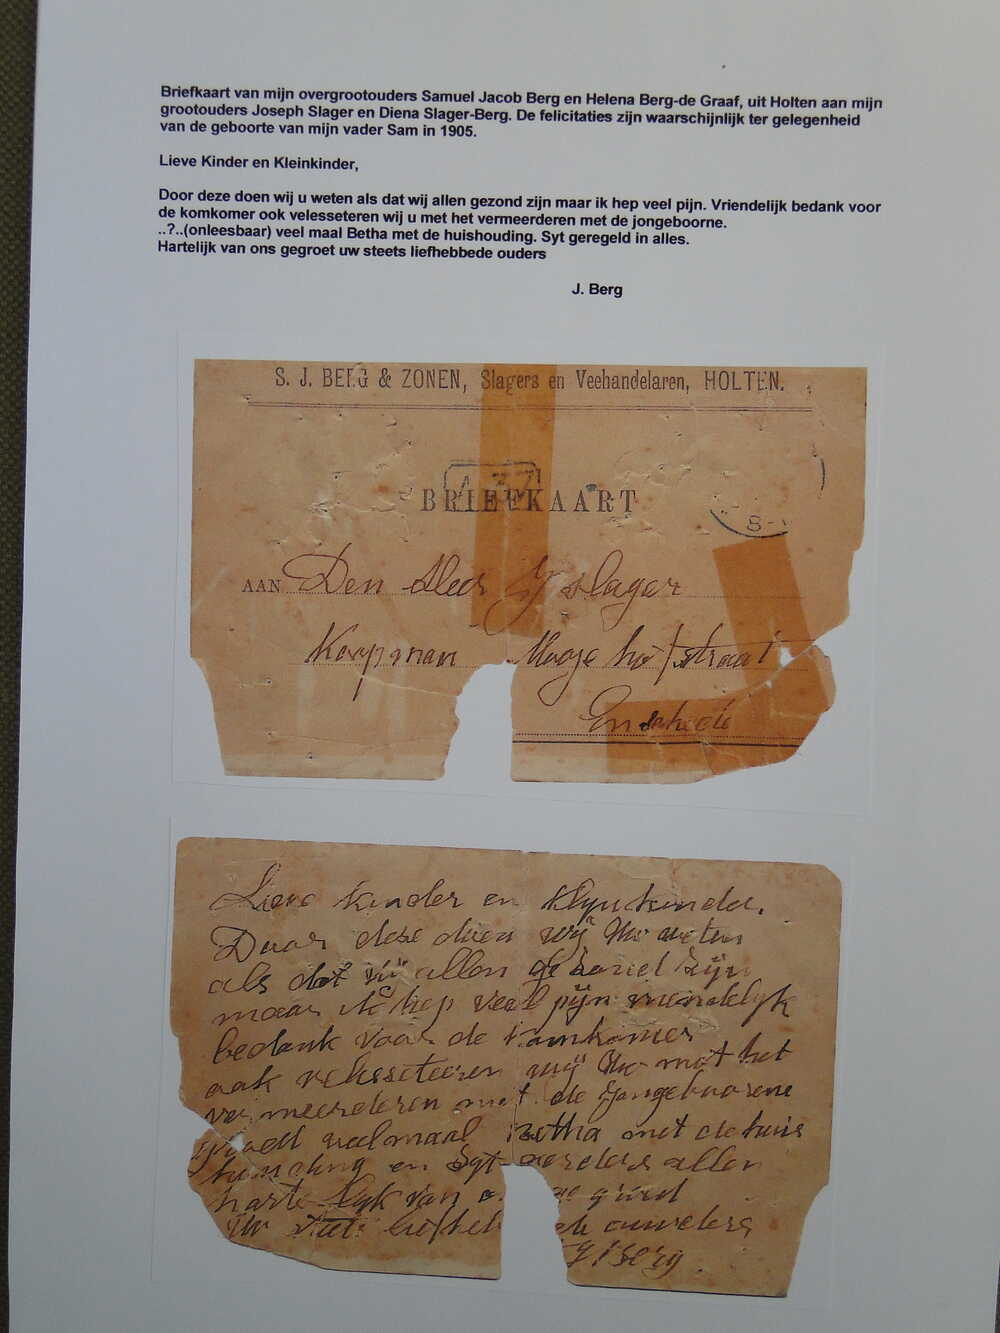 Briefkaart van mijn overgrootouders Samuel Jacob Berg en Helena Berg-de Graaf, uit Holten aan mijn
grootouders Joseph Slager en Diena Slager-Berg. De felicitaties zijn waarschijnlijk ter gelegenheid
van de geboorte van mijn vader Sam in 1905.
Lieve Kinder en Kleinkinder,
Door deze doen wij u weten als dat wij allen gezond zijn maar ik hep veel pijn. Vriendelijk bedank voor
de komkomer ook velesseteren wij u met het vermeerderen met de jongeboorne.
..?..(onleesbaar) veel maal Betha met de huishouding. Syt geregeld in alles.
Hartelijk van ons gegroet uw steets liefhebbede ouders
J. Berg
S. J. BERG & ZONEN, Slagers en Veehandelaren, HOLTEN.
BRIEFKAART
8
AAN Den Heer J Slager
Koopman Haaze straat
Enschede
Lieve Kinder en Klynkinder.
Duur dese doen wij Uw weten
als dat wij allen gesond zijn
maar ik hep veel pijn vriendelyk
bedank voor de komkomer
ook velesseteeren wij Uw met het
vermeerderen met de Jongeboorene
veelmaal Betha met de huis
houding en Syt allen
harte lyk van gruet
Uw steets liefheb de ouwders
J Berg